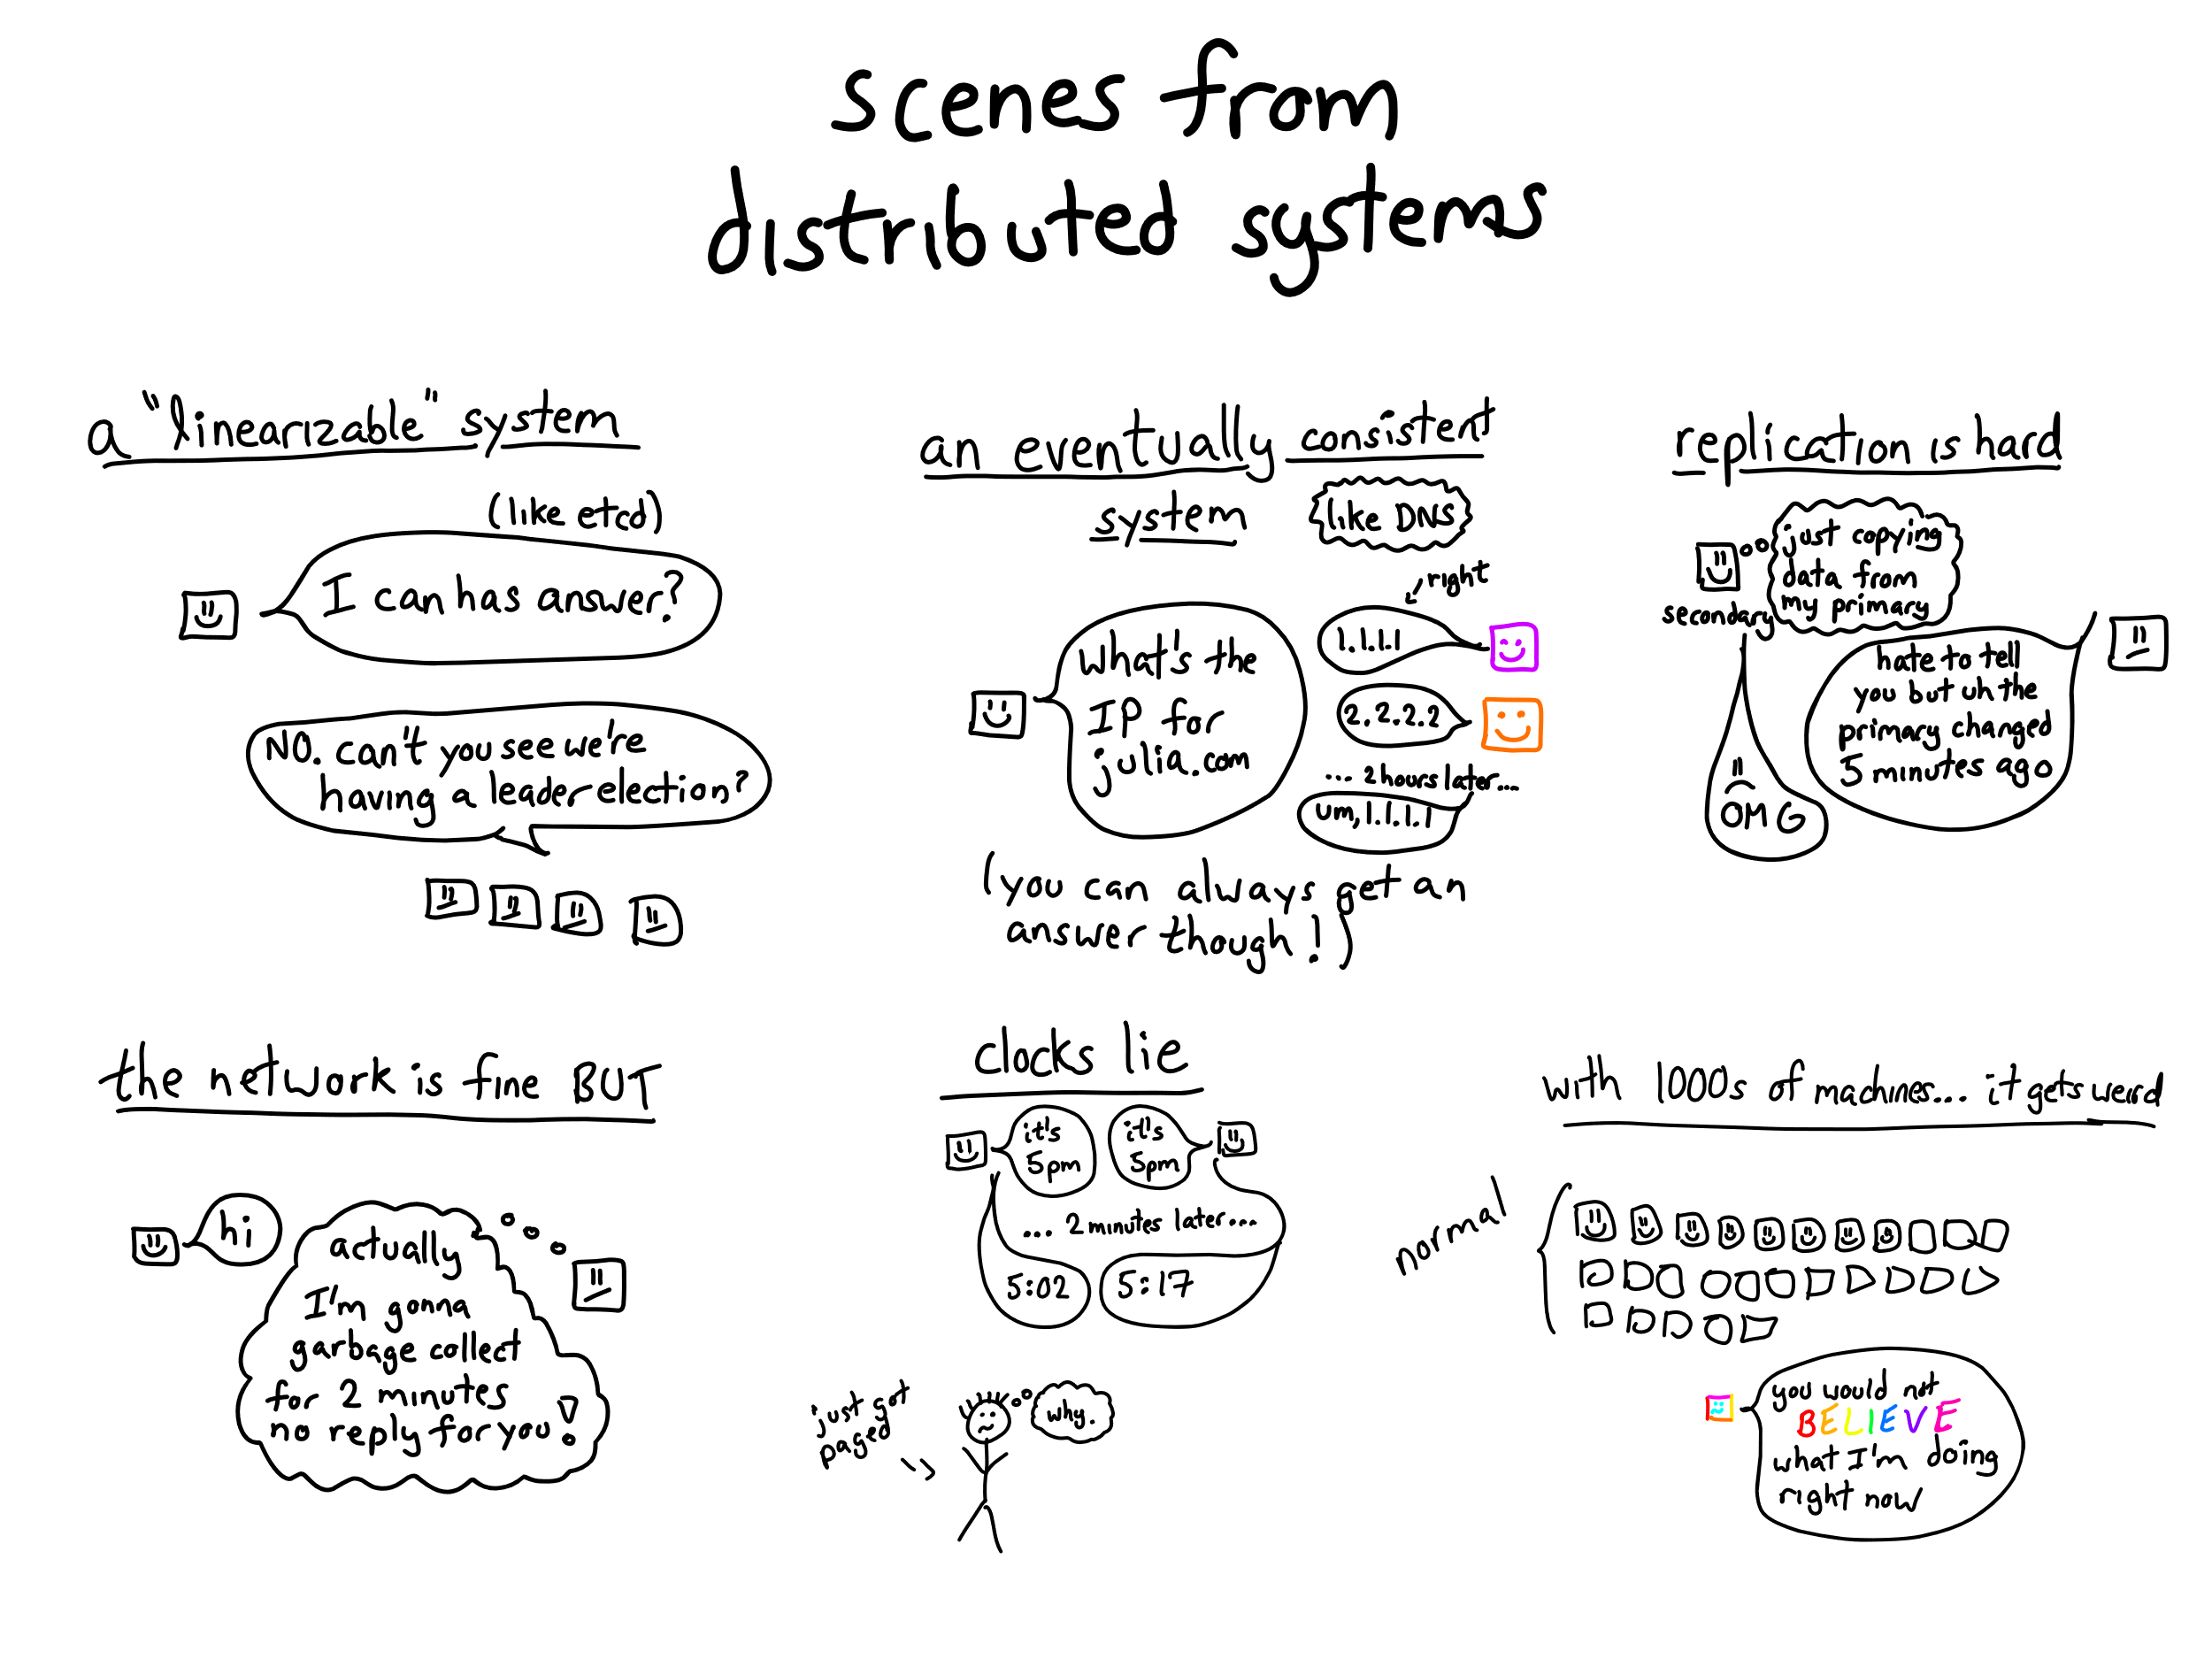 scenes from
distributed systems
a "linearizable" system
(like etcd)
I can has answer?
NO. can't you see we're
having a leader election?
an eventually consistent
system
like DNS
right
What's the
IP for
julia.com
1.1.1.1
2.2.2.2
... 2 hours later...
um, 1.1.1.1
(you can always get an
answer though!)
replication is hard
just copying
data from
my primary
secondary
hate to tell
you but uh the
primary changed
5 minutes ago
OMG
the network is fine BUT
hi
actually
I'm gonna
garbage collect
for 2 minutes
no reply for you!
clocks lie
it's
5pm
it's
5pm
... 2 minutes later...
5:02
5:17
just got
paged
why.
with 1000s of machines... it gets weird
normal
you would not
BELIEVE
what I'm doing
right now